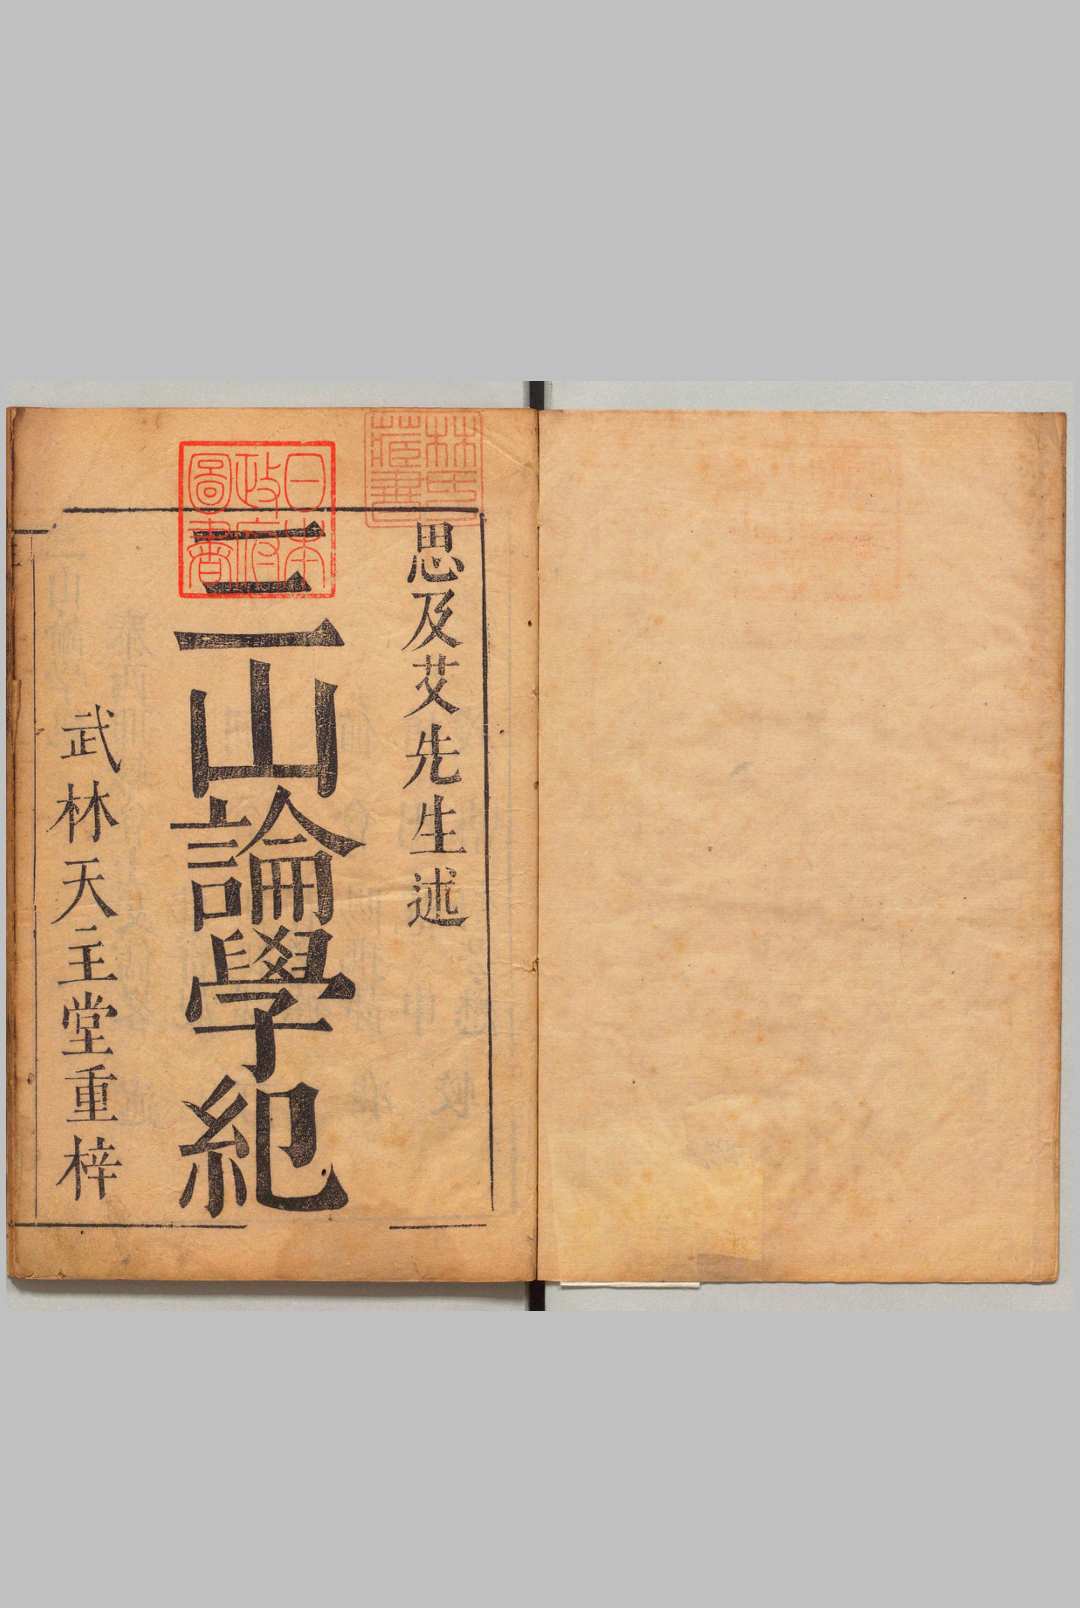 思及艾先生述
三山論學紀
武林天主堂重梓
林氏藏書
日本政府圖書